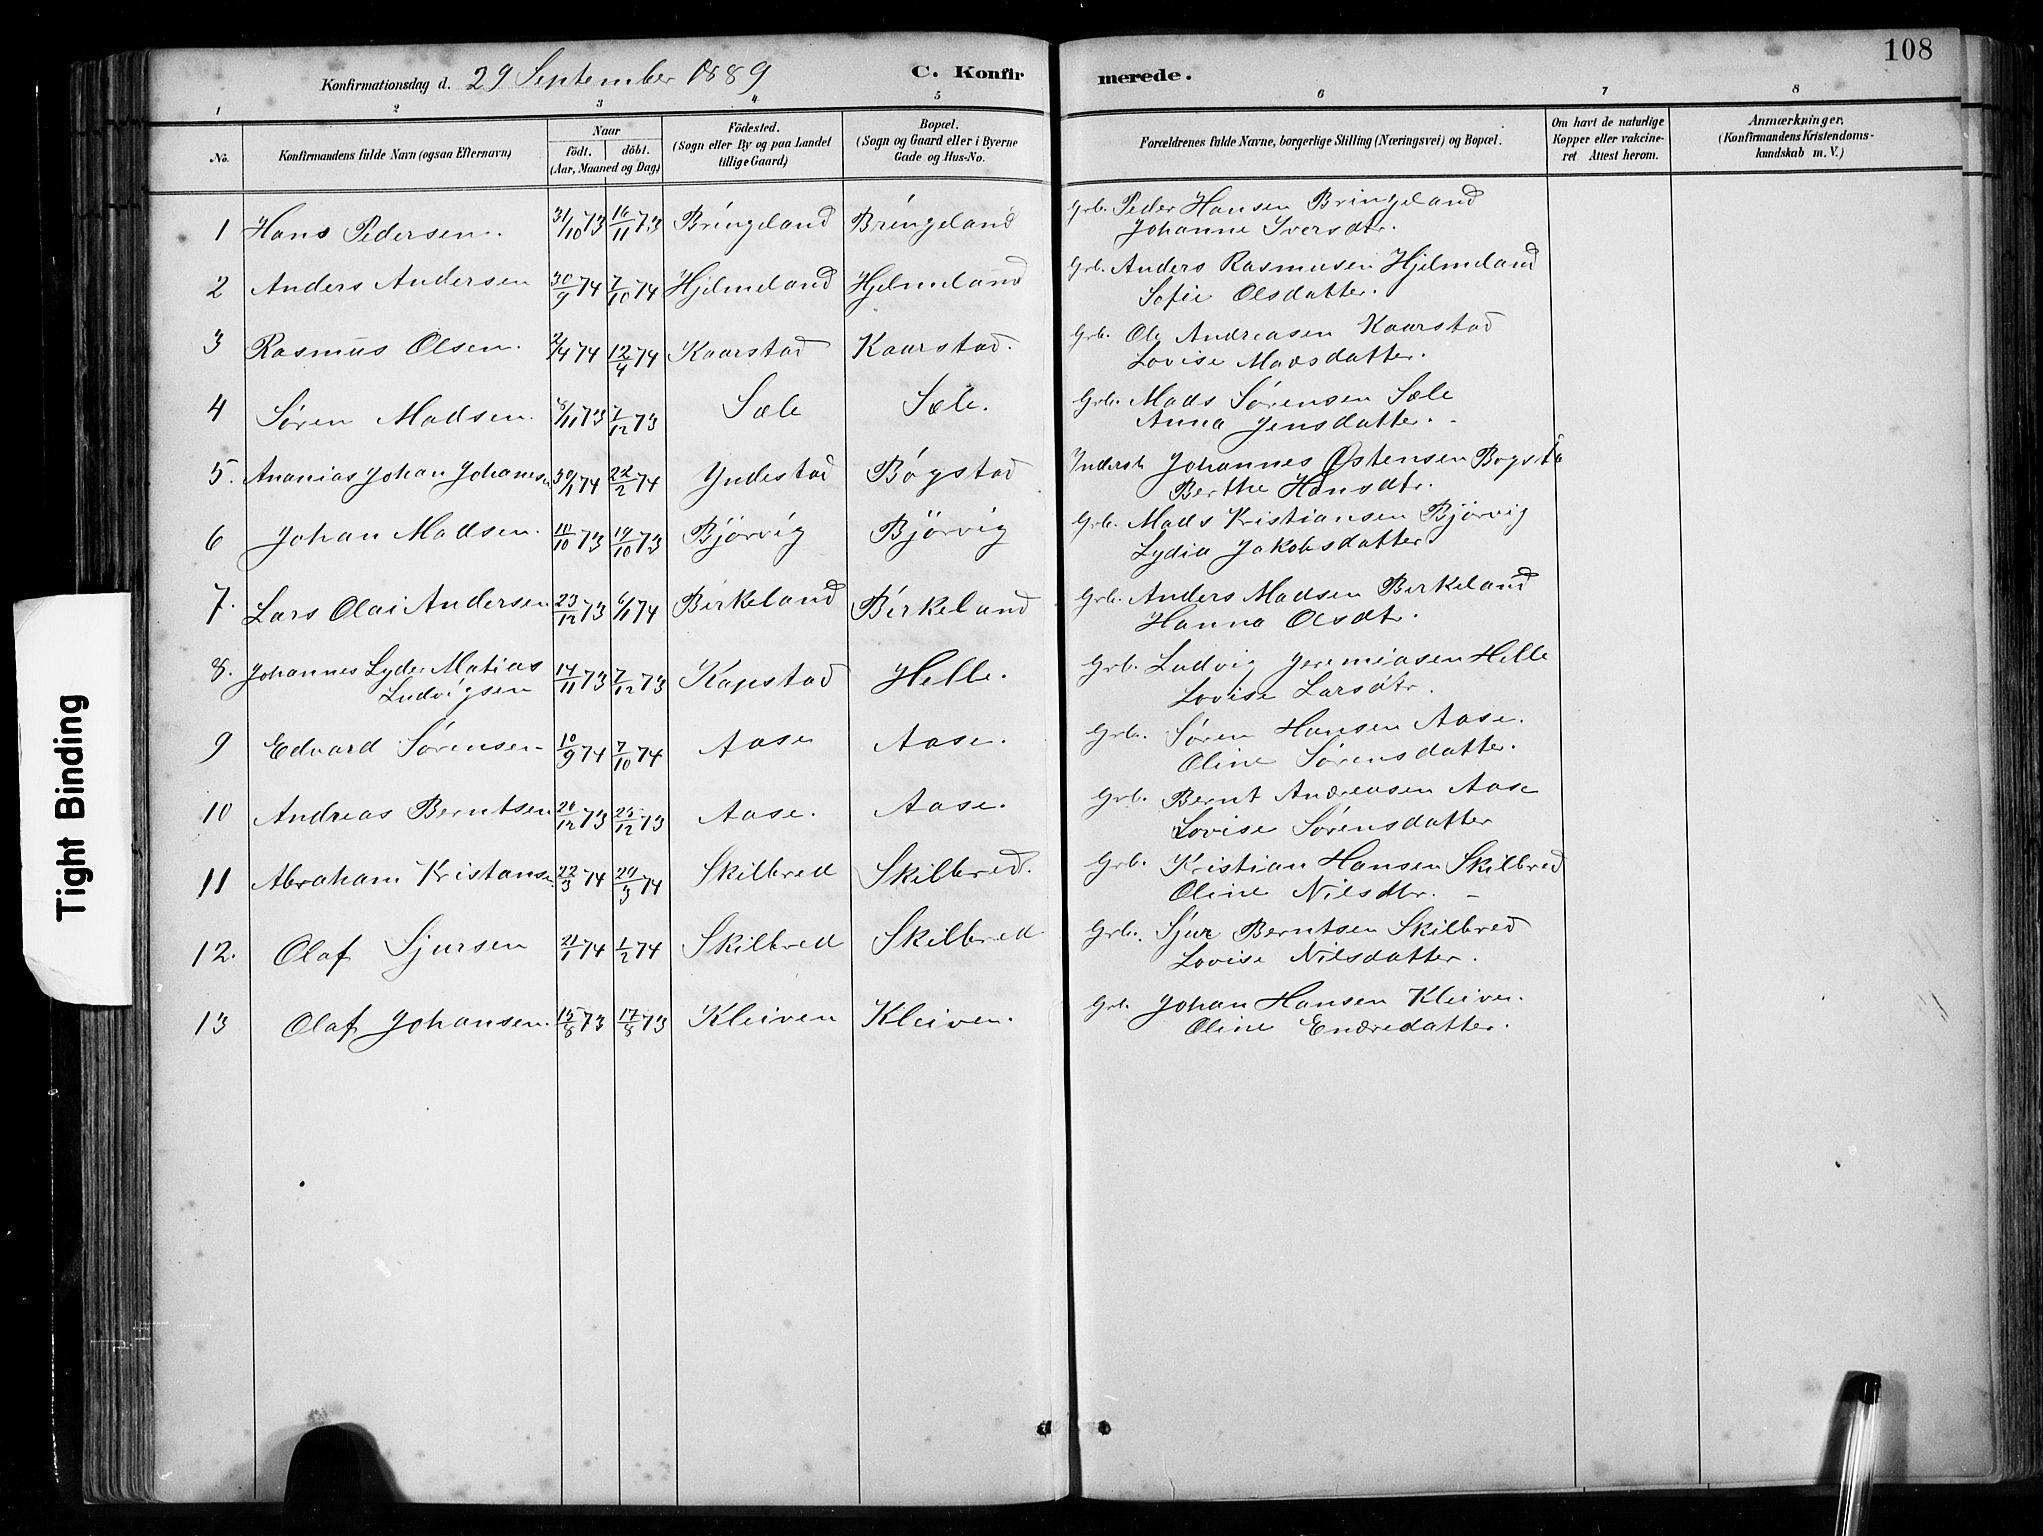 108
Konfirmationsdag d. 29 September 1889 C. Konfir merede.
1 2 3 4 5 6 7 8
No. Konfirmandens fulde Navn (ogsaa Efternavn) Naar födt. döbt. (Aar, Maaned og Dag) Födested. (Sogn eller By og paa Landet tillige Gaard) Bopæl. (Sogn og Gaard eller i Byerne Gade og Hus-No. Forældrenes fulde Navne, borgerlige Stilling (Næringsvei) og Bopæl. Om havt de naturlige Kopper eller vakcineret Attest herom. Anmærkninger. (Konfirmandens Kristendomskundskab m. V.)
1 Hans Pedersen. 31/10 73 16/11 73 Bringeland Bringeland Grb. Peder Hansen Bringeland
Johanne Iversdtr.
2 Anders Andersen 30/9 74 7/10 74 Hjelmeland Hjelmeland Grb. Anders Rasmusen Hjelmeland
Sofie Olsdatter.
3 Rasmus Olsen. 2/4 74 12/4 74 Kaarstad Kaarstad. Grb. Ole Andreasen Kaarstad
Lovise Madsdatter.
4 Søren Madsen. 8/11 73 7/12 73 Sæle Sæle. Grb. Mads Sørensen Sæle
Anna Jensdatter. -
5. Ananias Johan Johannesen 30/1 74 22/2 74 Yndestad Bøgstad Inderst Johannes Østensen Bogsta
Berthe Hansdtr.
6 Johan Madsen. 11/10 73 19/10 73 Bjørvig Bjørvig Grb. Mads Kristiansen Bjørvig
Lydia Jakobsdatter
7. Lars Olai Andersen 23/12 73 6/1 74 Birkeland Birkeland Grb. Anders Madsen Birkeland
Hanna Olsdtr.
8. Johannes Lyder Matias Ludvigsen 14/11 73 7/12 73 Kapstad Helle. Grb. Ludvig Jeremiasen Helle
Lovise Larsdtr.
9 Edvard Sørensen 10/9 74 7/10 74 Aase Aase. Grb. Søren Hansen Aase.
Oline Sørensdatter.
10 Andreas Berntsen 20/12 73 25/12 73 Aase. Aase. Grb. Bernt Andreasen Aase
Lovise Sørensdatter
11 Abraham Kristansen 22/3 74 29/3 74 Skilbred Skilbred. Grb. Kristian Hansen Skilbred
Oline Nilsdtr. -
12. Olaf Sjursen 21/1 74 1/2 74 Skilbred Skilbred Grb. Sjur Berntsen Skilbred
Lovise Nilsdatter.
13 Olaf Johansen. 15/8 73 17/8 73 Kleiven Kleiven. Grb. Johan Hansen Kleiven.
Oline Endredatter.
Tight Binding